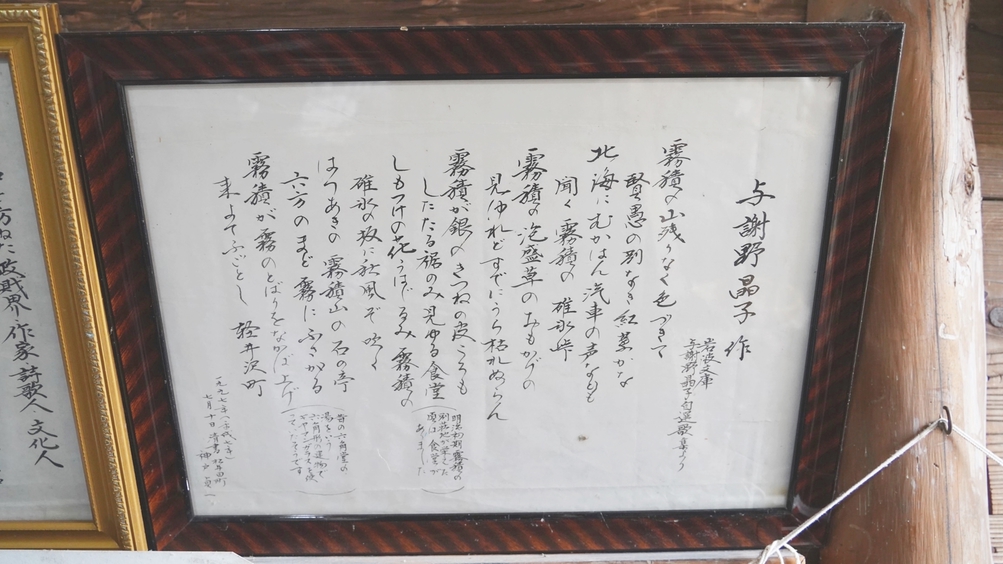 与謝野晶子 作
岩波文庫
与謝野晶子自選歌集より
霧積の山残りなく色づきて
賢愚の別なき紅葉かな
北海にむかはん汽車の声なども
聞く霧積の 碓氷峠
霧積の泡盛草のおもかげの
見ゆれどすでにうら枯れぬらん
霧積が銀のきつねの皮ごろも
したたる裾のみ見ゆる食堂
(明治初期霧積の
別荘地が栄えた
頃は食堂が
ありました)
しもつけの花うはじろみ霧積の
碓氷の坂に秋風ぞ吹く
はつあきの 霧積山の 石の亭
六方のまど霧に ふさがる
(昔の六角堂の
湯をいう
六角形の建物で
こっていたそうです)
霧積が霧のとばりをなかば上げ
来よてふごとし 軽井沢町
一九九七年(平成七年)
七月十日 清書 松井田町
政財界 作家 詩歌人 文化人